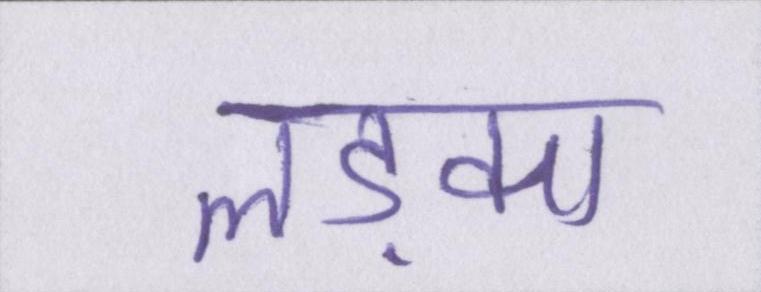 लड़का